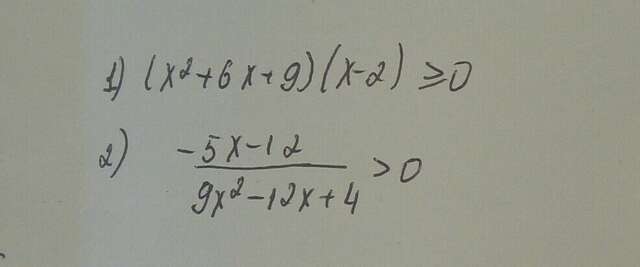 1) (x²+6x+9)(x-2) ≥0
2) (-5x-12)/(9x²-12x+4) >0